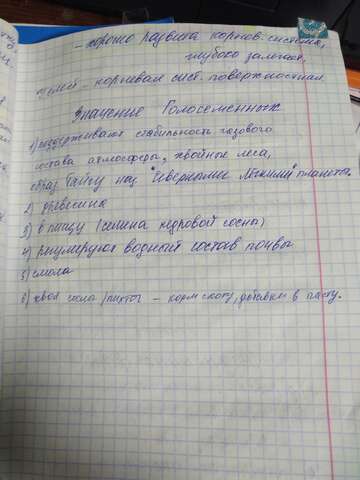 - хорошо развита корнев. система,
глубоко залегает.
- корневая сист. поверхностная
Значение Голосеменных
1) поддерживают стабильность газового
состава атмосферы, хвойные леса,
образ тайгу наз "Северными Лёгкими" планеты.
2) древесина
3) в пищу (семена кедровой сосны)
4) регулируют водный состав почвы
5) смола
6) хвоя сосны/пихты - корм скоту, добавки в пасту.